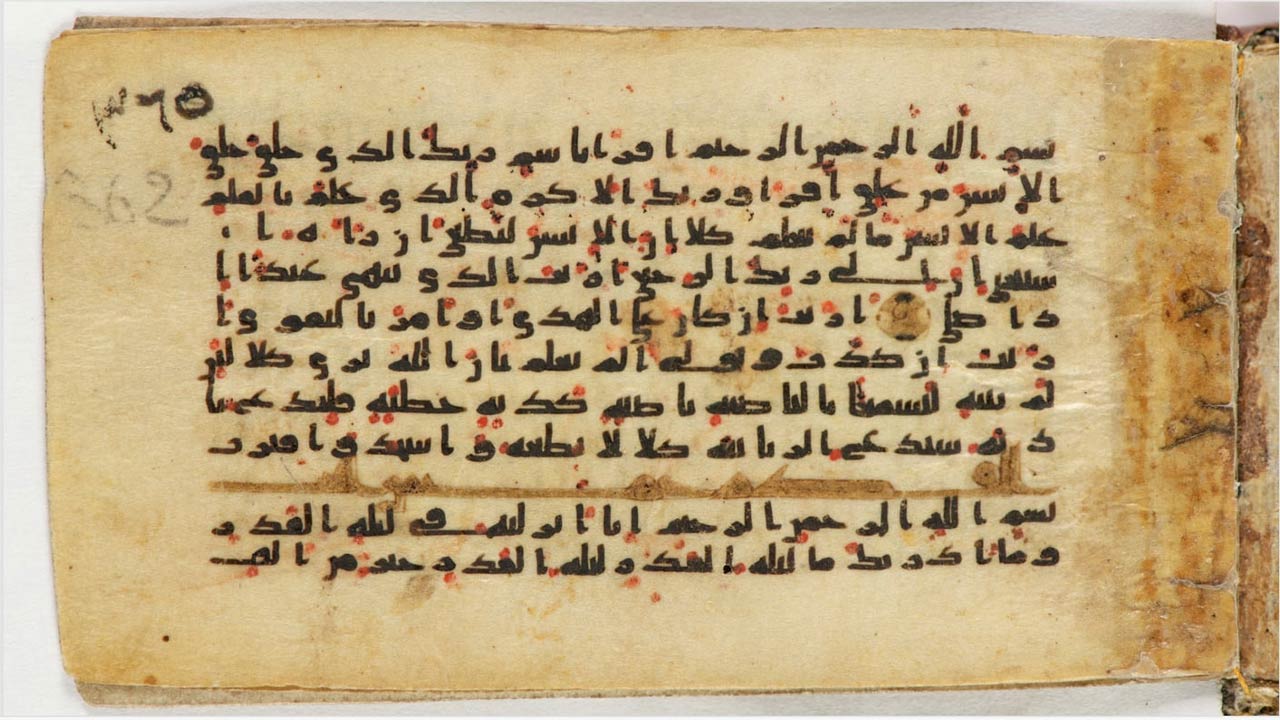 ٣٦٥
362
بسم الله الرحمن الرحيم اقرا باسم ربك الذي خلق خلق
الانسن من علق اقرا وربك الاكرم الذي علم بالقلم
علم الانسن ما لم يعلم كلا ان الانسن ليطغى ان راه ا
ستغنى ان الى ربك الرجعى اريت الذي ينهى عبدا ا
ذا صلى اريت ان كان على الهدى او امر بالتقوى ا
ريت ان كذب وتولى الم يعلم بان الله يرى كلا لئن
لم ينته لنسفعا بالناصيه ناصيه كذبه خطيه فليدع نا
ديه سندع الزبانيه كلا لا تطعه واسجد واقترب
بسم الله الرحمن الرحيم انا انزلنه في ليله القدر
وما ادريك ما ليله القدر ليله القدر خير من الف